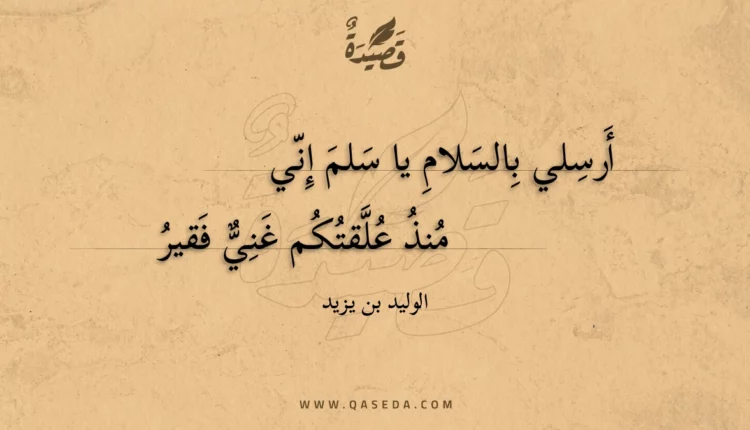 قَصِيْدَةٌ
أَرسِلي بِالسَلامِ يا سَلمَ إِنّي
مُنذُ عُلَّقتُكُم غَنِيٌّ فَقيرُ
الوليد بن يزيد
WWW.QASEDA.COM